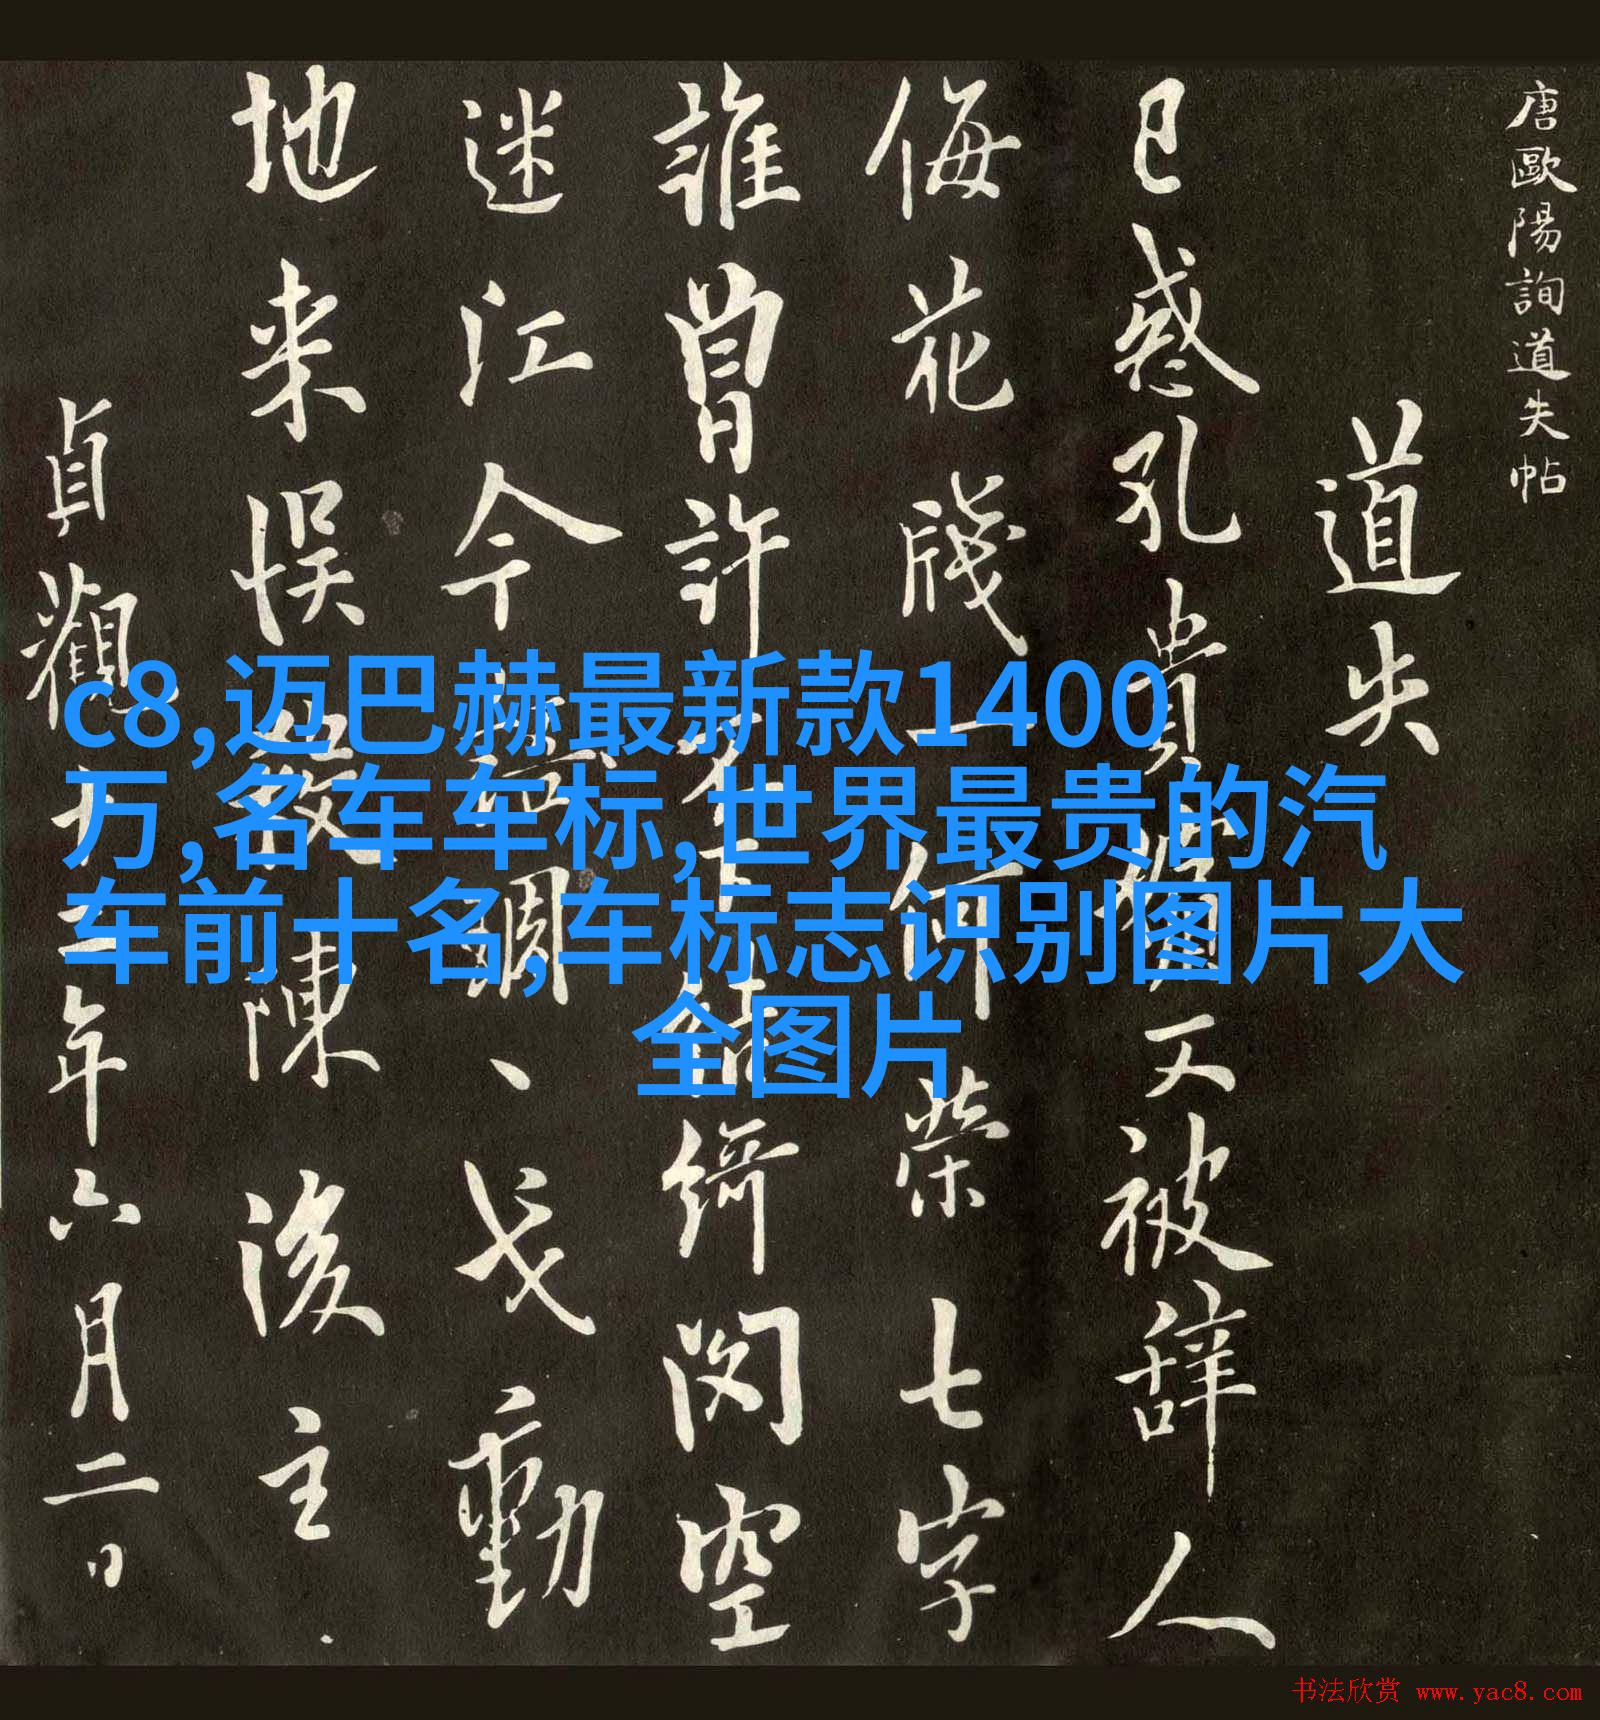 唐歐陽詢道失帖
道失
已惑孔貴嬪又被辞人
侮花牋一何榮七字
誰曾許不下結綺閣空
迷江令語雕戈動
地来悮殺陳後主
貞觀十二年六月二日
c8,迈巴赫最新款1400
万,名车车标,世界最贵的汽
车前十名,车标志识别图片大
全图片
书法欣赏 www.yac8.com